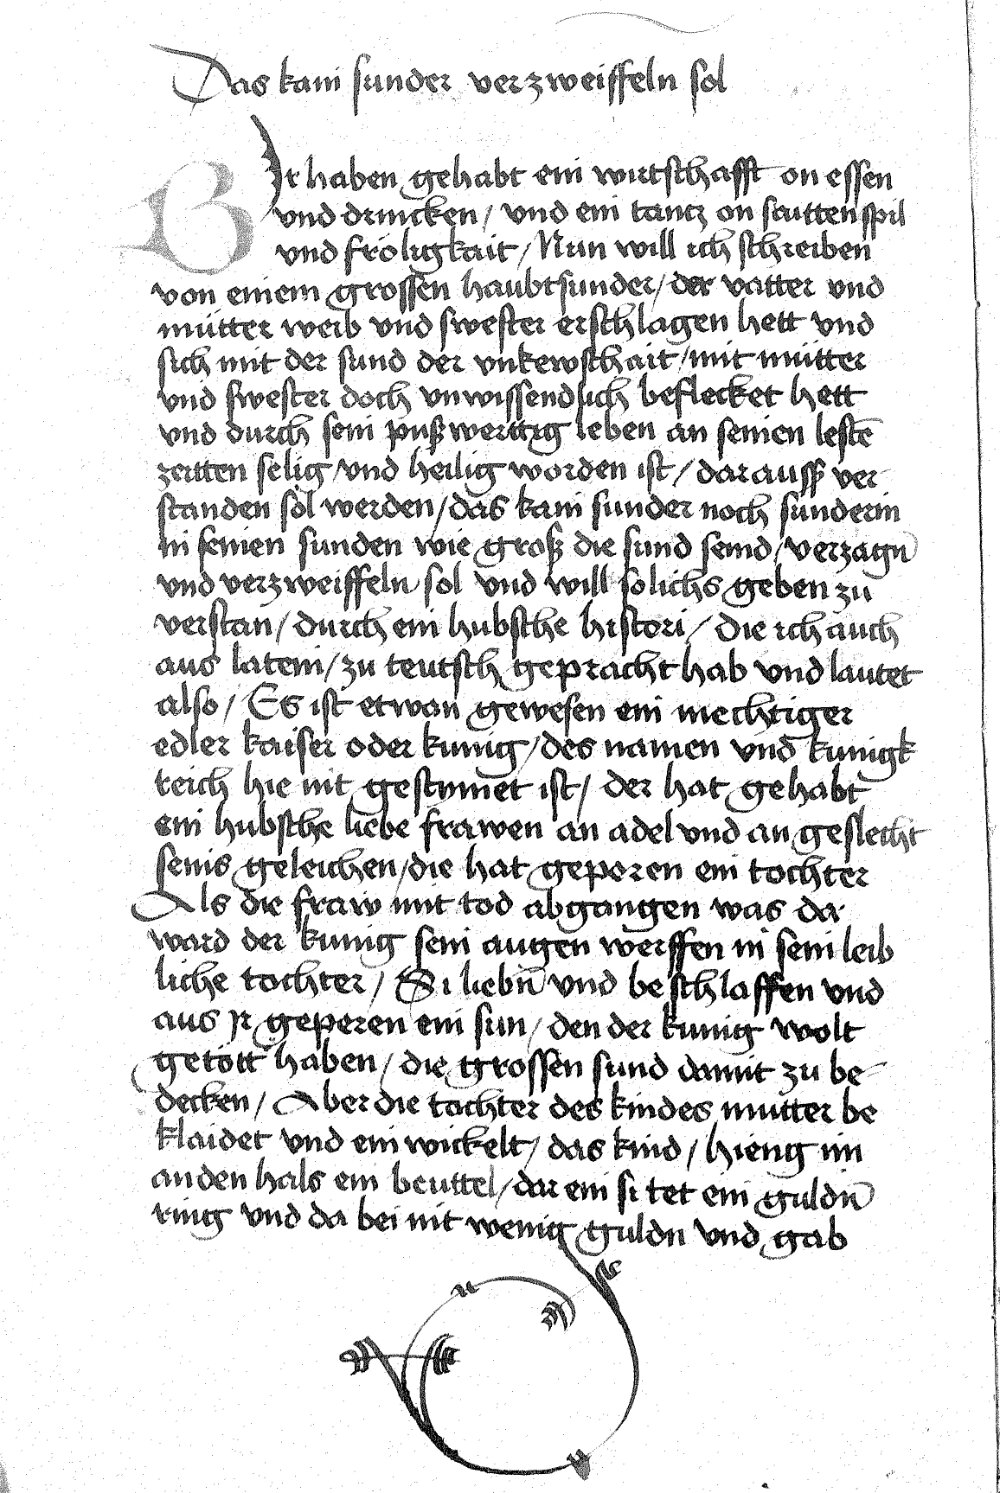 Das kain sunder verzweiffeln sol
Wir haben gehabt ein wirtschafft on essen
und drincken / und ein tantz on saittenspil
und fröligkait / Nun will ich schreiben
von einem grossen haubtsunder / der vatter und
mutter weib und swester erschlagen hett und
sich mit der sund der unkewschait / mit mutter
und swester doch unwissendlich beflecket hett
und durch sein pußwertig leben an seinen lestē
zeitten selig / und heilig worden ist / darauß ver
standen sol werden / das kain sunder noch sunderin
in seinen sunden wie groß die sund seind / verzagn
und verzweiffeln sol und will solichs geben zu
verstan / durch ein hubsche histori / die ich auch
aus latein / zu teutsch gepracht hab und lautet
also / Es ist etwan gewesen ein mechtiger
edler kaiser oder kunig / des namen und kunigk
reich hie nit gestymet ist / der hat gehabt
ein hubsche liebe frawen an adel und an geslecht
seins geleichen / die hat geporen ein tochter
Als die fraw mit tod abgangen was da
ward der kunig sein augen werffen in sein leib
liche tochter / Si liebn und beschlaffen und
aus jr geperen ein sun / den der kunig wolt
getött haben / die grossen sund damit zu be
decken / Aber die tochter des kindes mutter be
klaidet und einwickelt / das kind / hieng im
an den hals ein beuttel / dar ein si tet ein guldn
ring und da bei nit wenig guldn und gab